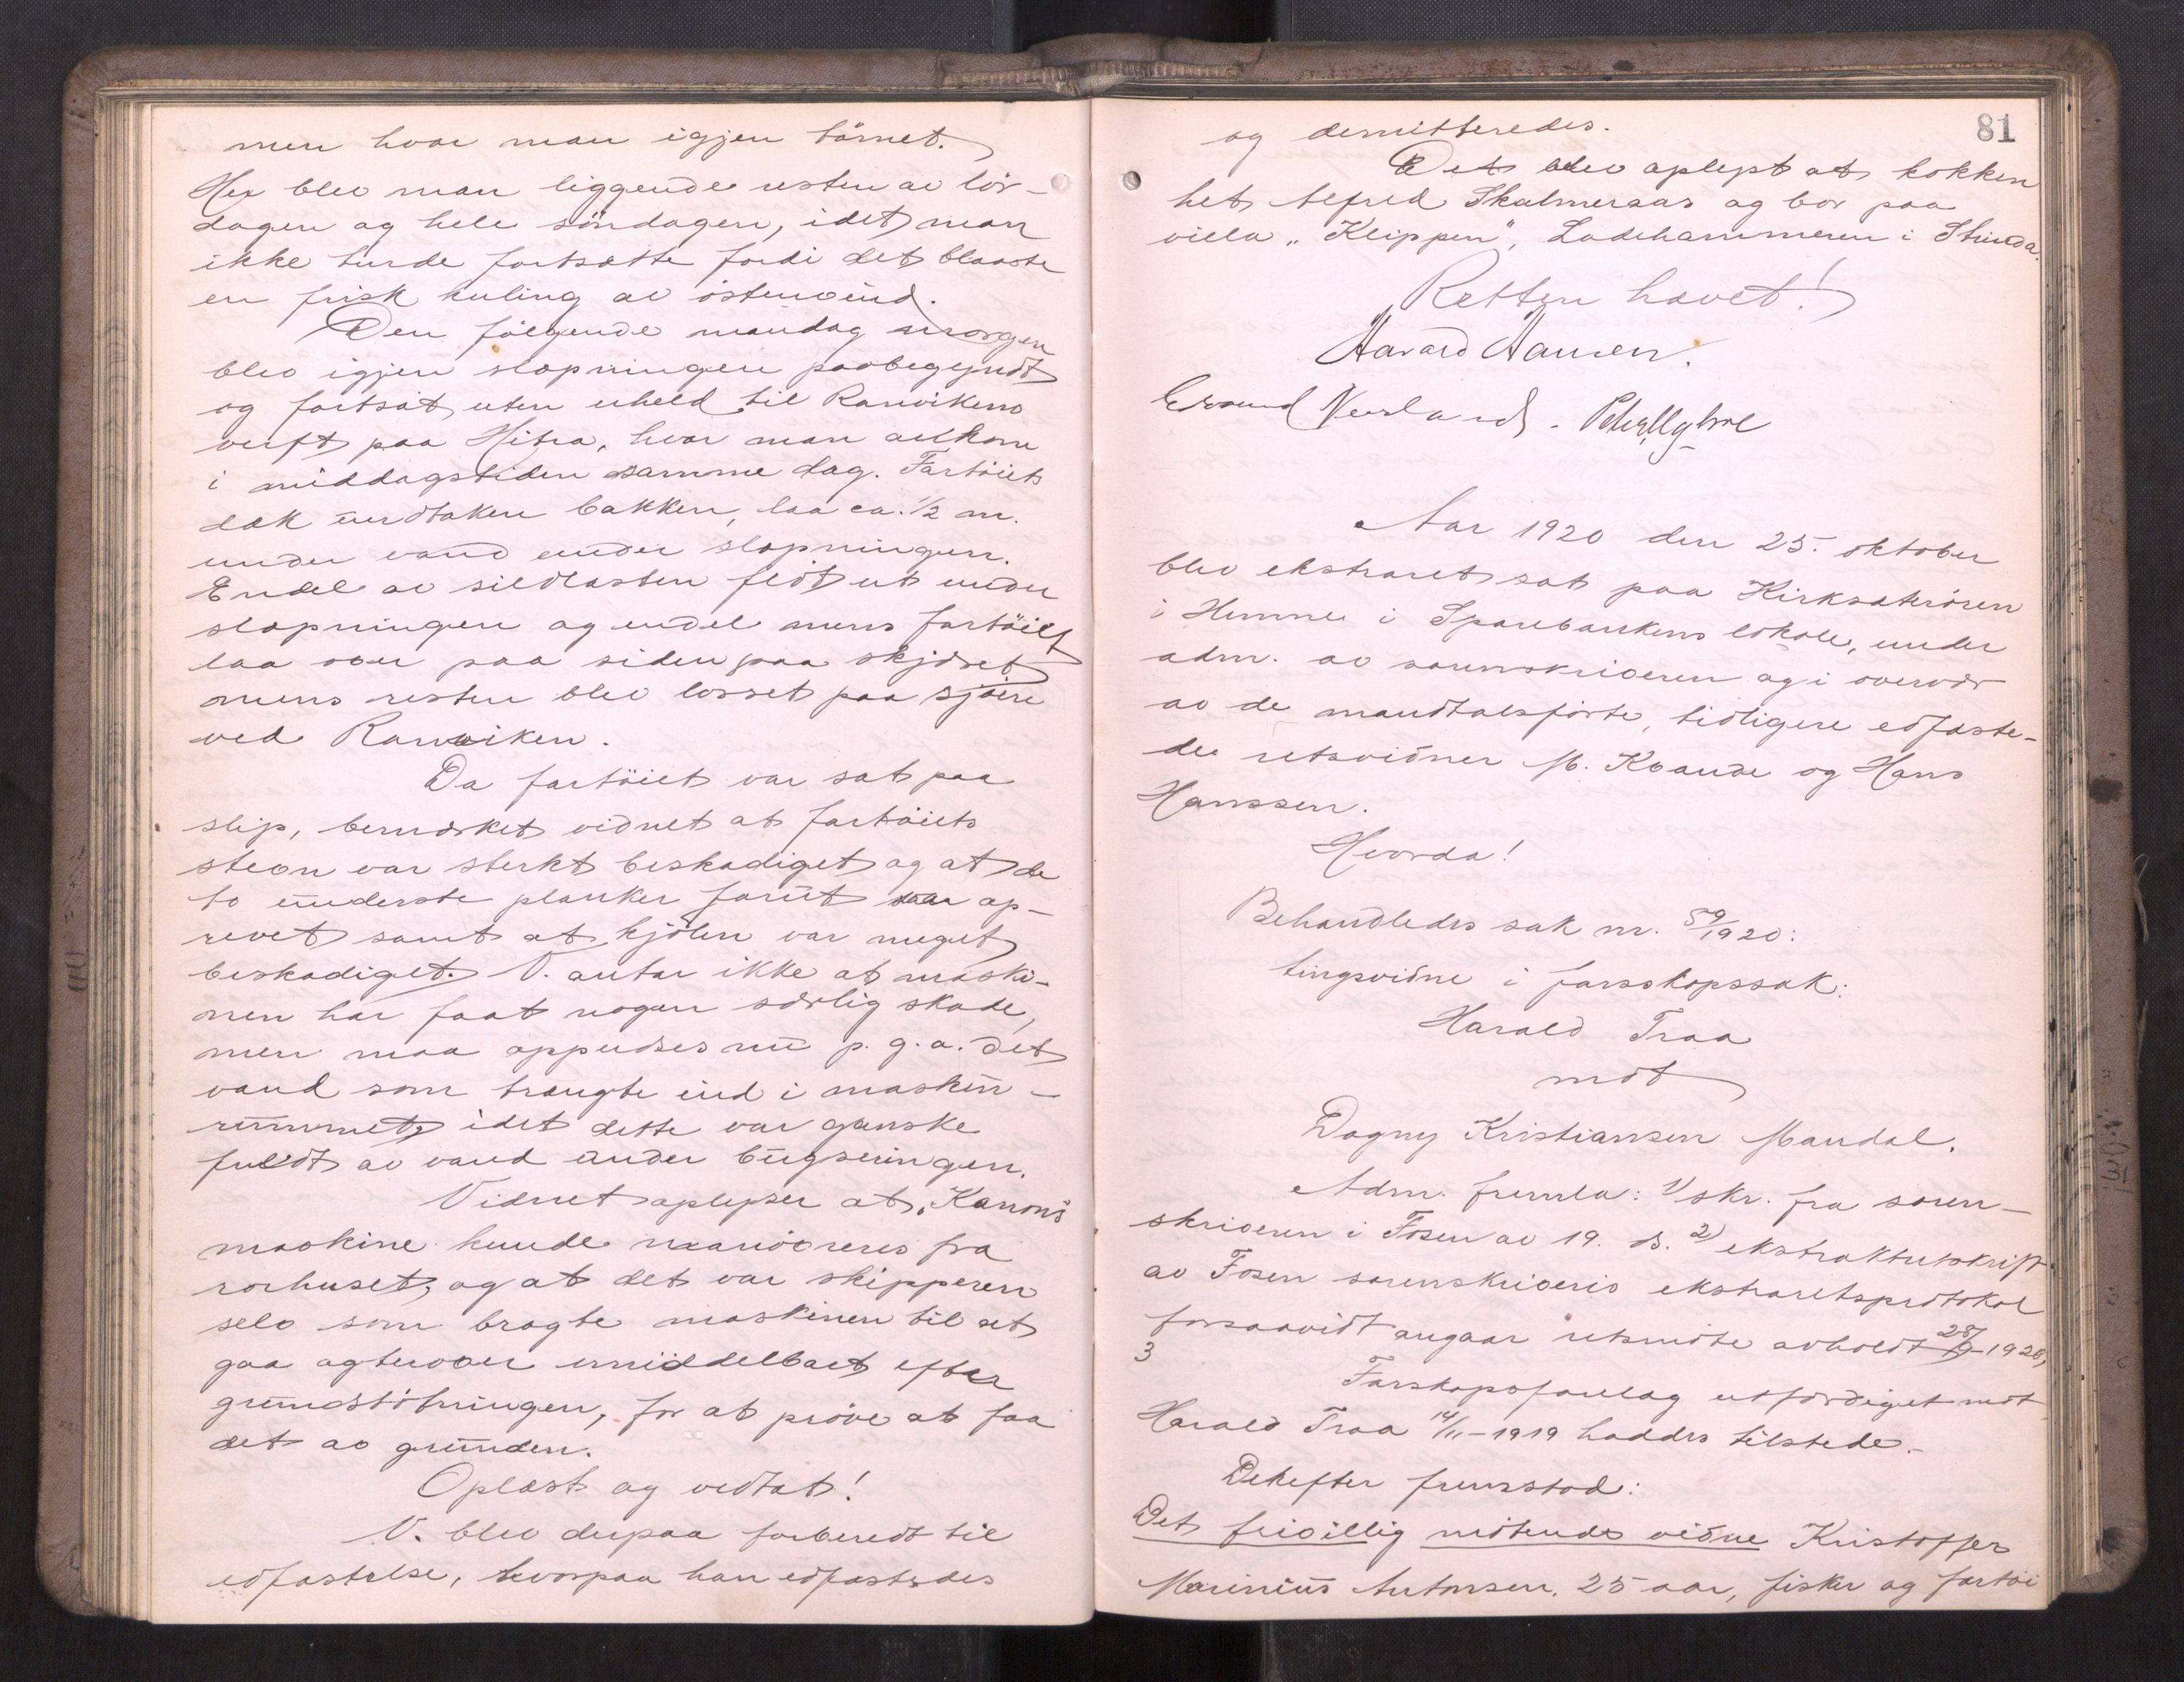 men hvor man igjen tørnet.
Her blev man liggende resten av lør-
dagen og hele søndagen, idet man
ikke turde fortsætte fordi det blaaste
en frisk kuling av østenvind.
Den følgende mandag morgen
blev igjen slæpningen paabegyndt
og fortsat uten uheld til Ranvikens
verft paa Hitra, hvor man ankom
i middagstiden samme dag. Fartøiets
dæk undtaken bakken, laa ca. ½ m.
under vand under slæpningen.
Endel av sildlasten fløt ut under
slæpningen og endel mens fartøiet
laa over paa siden paa skjæret
mens resten blev losset paa sjøen
ved Ranviken.
Da fartøiet var sat paa
slip, bemærket vidnet at fartøiets
stevn var sterkt beskadiget og at de
to underste planker forut var op-
revet samt at kjølen var meget
beskadiget. V. antar ikke at maski-
nen har faat nogen særlig skade,
men maa oppudses nu p. g. a. det
vand som trængte ind i maskin-
rummet, idet dette var ganske
fuldt av vand under bugseringen.
Vidnet oplyser at „Kanons"
maskine kunde manøvreres fra
rorhuset, og at det var skipperen
selv som bragte maskinen til at
gaa agterover umiddelbart efter
grundstøtningen, for at prøve at faa
det av grunden.
Oplæst og vedtat!
V. blev derpaa forberedt til
edfæstelse, hvorpaa han edfæstedes
81
og demitteredes.
Det blev oplyst at kokken
het Alfred Skalmeraas og bor paa
villa „Klippen", Ladehammeren i Strinda.
Retten hævet!
Havard Hansen.
Neerland
Aar 1920 den 25. oktober
blev ekstraret sat paa Kirksæterøren
i Hemne i Sparebankens lokale, under
adm. av sorenskriveren og i overvær
av de mandtalsførte, tidligere edfæste-
de retsvidner M. Kvande og Hans
Hanssen.
Hvorda!
Behandledes sak nr. 59/1920:
tingsvidne i farsskapssak:
Harald Traa
mot
Dagny Kristiansen Mandal.
Adm. fremla: 1) skr. fra soren-
skriveren i Fosen av 19. ds. 2) ekstraktutskrift
av Fosen sorenskriveris ekstraretsprotokol
forsaavidt angaar retsmøte avholdt 28/9-1920,
3
Farskapsforelæg utfærdiget mot
Harald Traa 14/11-1919 haddes tilstede.
Derefter fremstod:
Det frivillig møtende vidne Kristoffer
Marinius Antonsen, 25 aar, fisker og fartøi